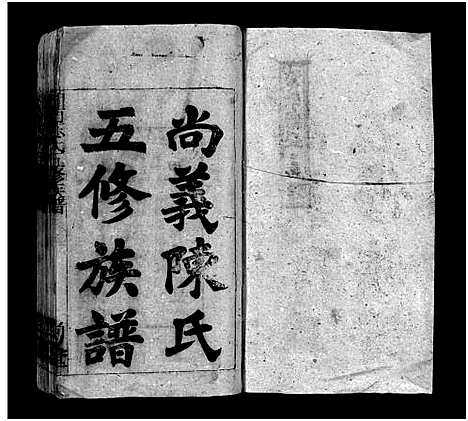 尚義陳氏
五修族譜